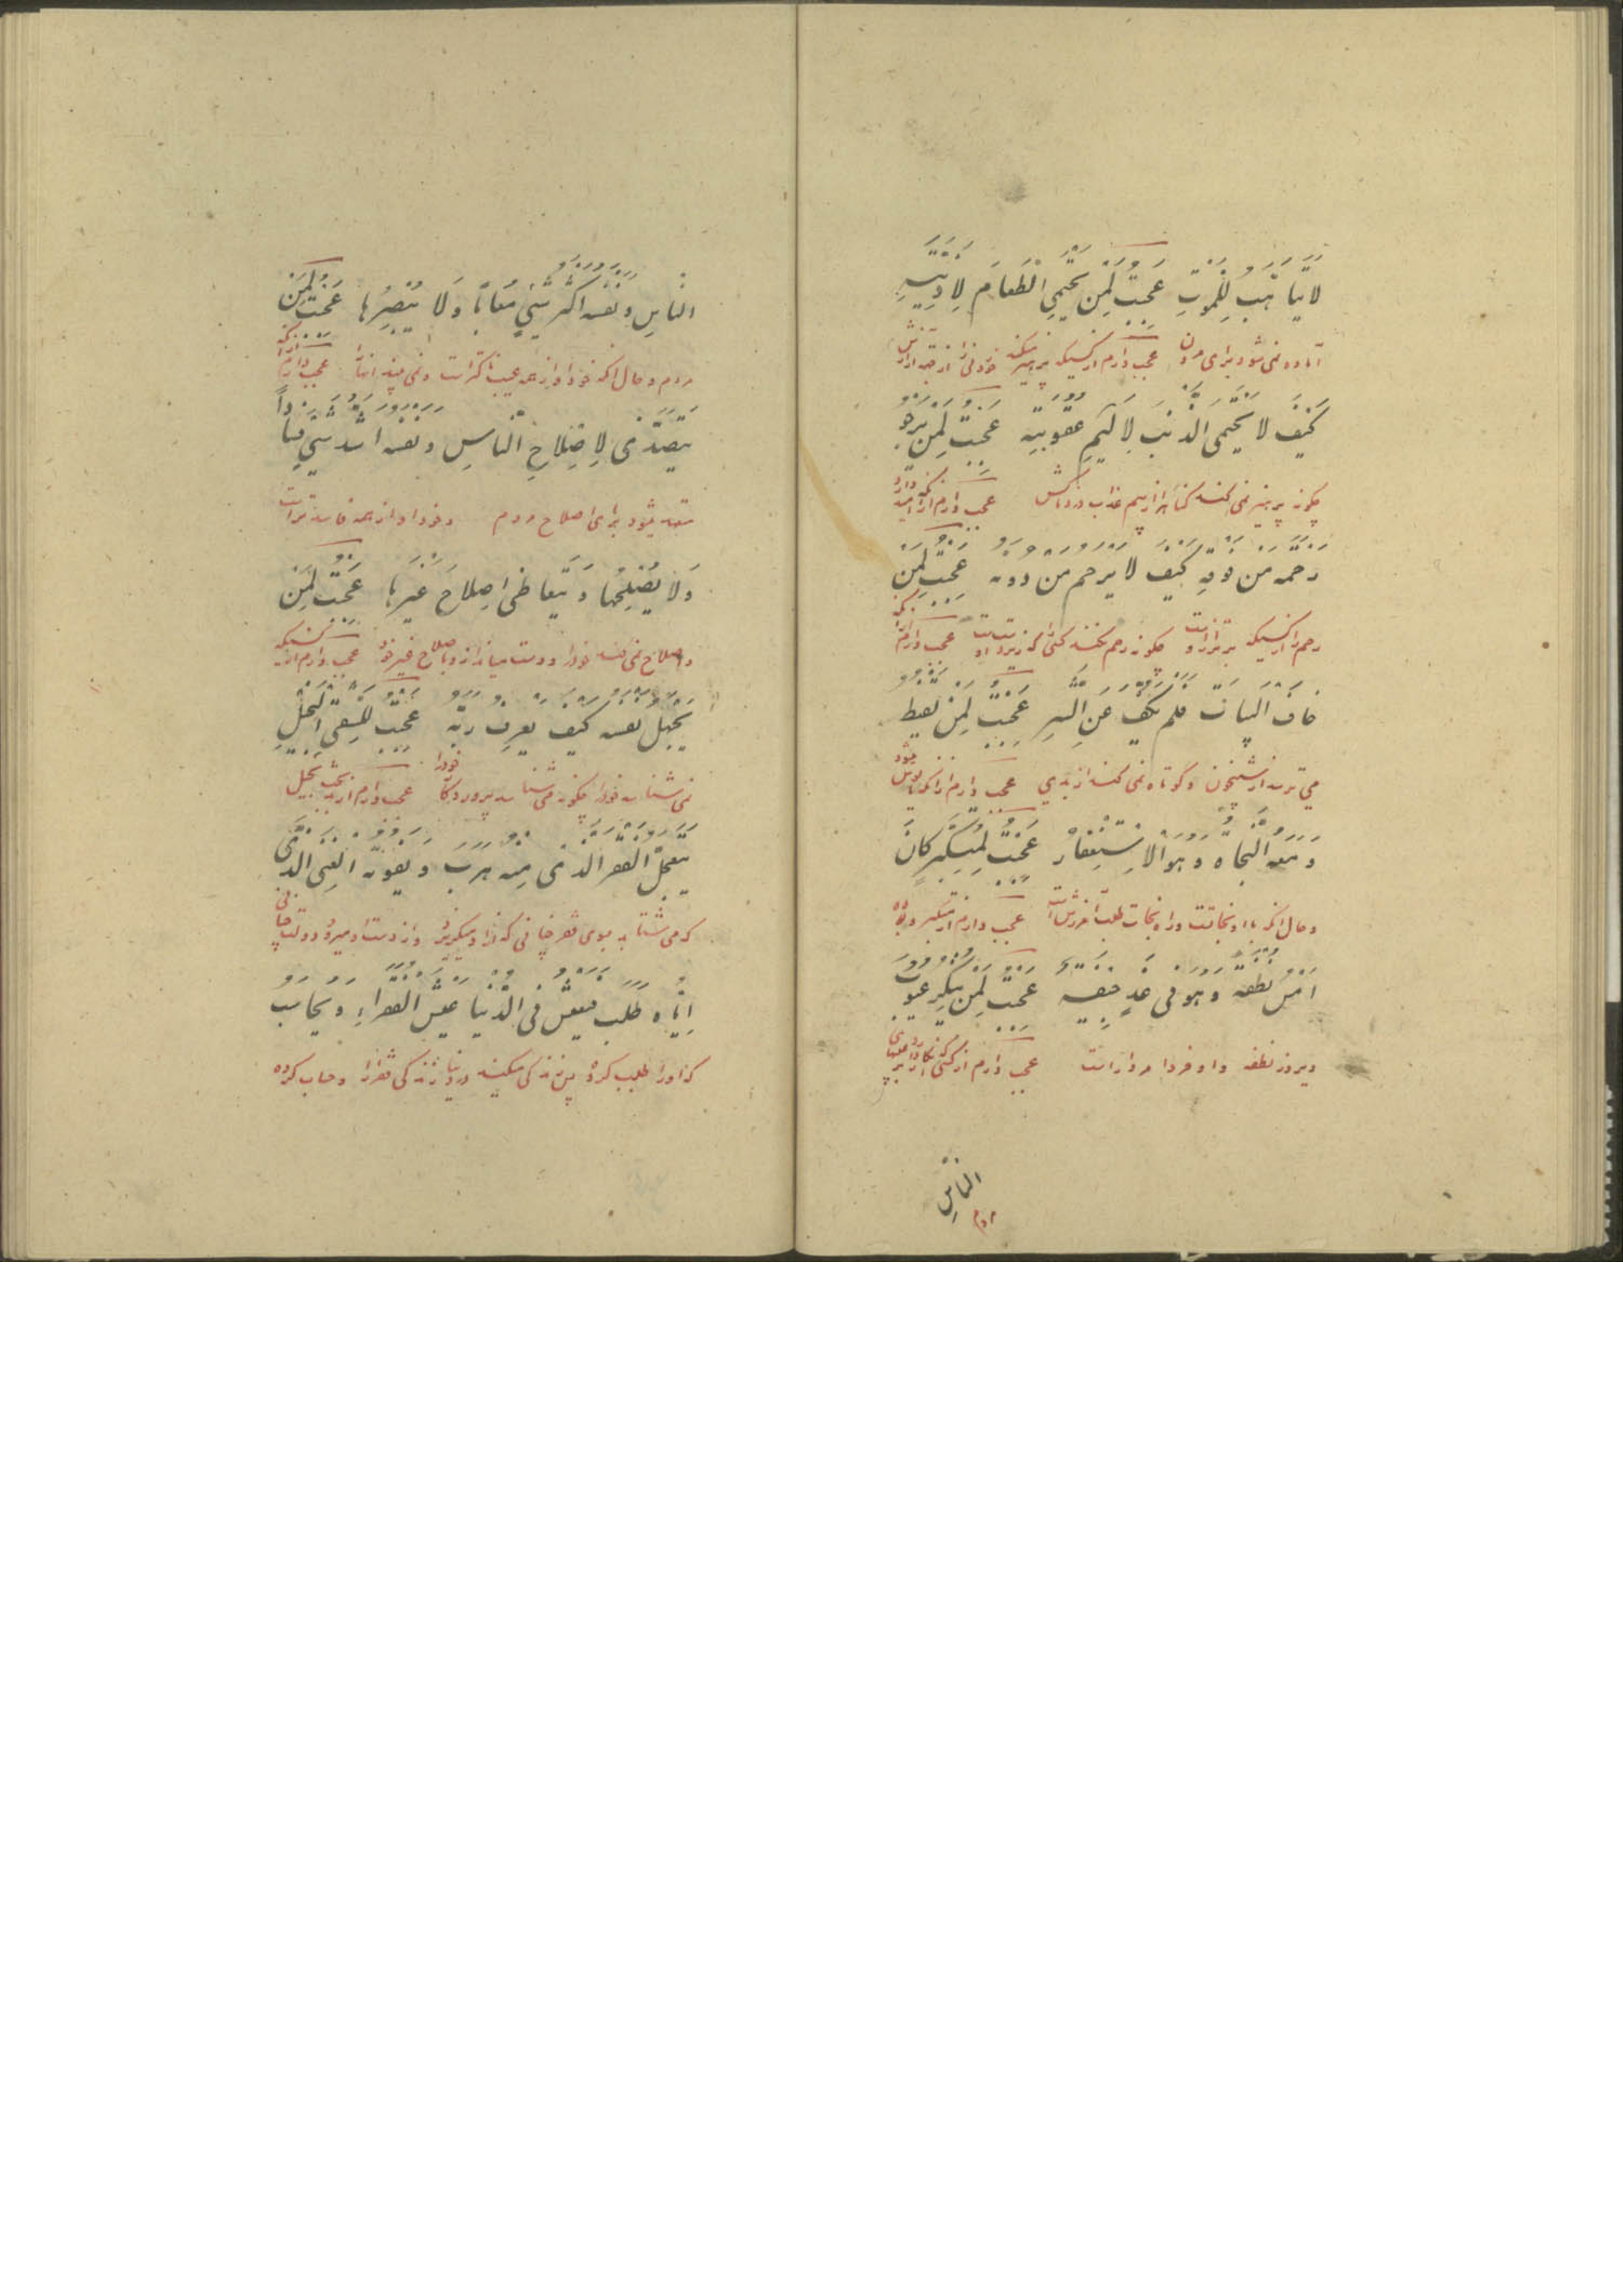 لا یتاهّب للموتِ عَجِبتُ لِمَن یَحتمی الطَّعامَ لِاَذِیَّتِهِ
آماده نمی شود برای مردن عجب دارم از کسیکه پرهیز میکند خوردنی را از جهة آزارش
کَیفَ لا یَحتَمی الذَّنبَ لِاَلیمِ عقوبته عَجِبتُ لِمَن یرجو
چکونه پرهیز نمی کند کناه را از بیم عذاب دردناکش عجب دارم از آنکه امید دارد
رحمة من فوقه کیف لا یرحم من دونه عجبت لمن
رحم را از کسیکه برتر از اوست چکونه رحم نمیکند کسی را که زیردست اوست عجب دارم از آنکه
خاف البیات فلم یکفّ عن السر عجبت لمن یقنط
می ترسد از شبیخون و کوتاه نمی کند از بدی عجب دارم از آنکه مایوس میشود
و معه النجاة و هو الاستغفار عجبت لمتکبّر کان
و حال آنکه با او نجاتست و راه نجات طلب آمرزش است عجب دارم از متکبر بوده
امس نطفة و هو فی غد جیفة عجبت لمن ینکر عیوب
دیروز نطفه و او فردا مردار است عجب دارم از کسی که انکار دارد بر عیبهای
الناسِ
مردم
الناسِ و نفسه اکثر شیء مَعاباً وَ لا یُبصِرُها عَجبتُ لِمَن
مردم و حال آنکه خود او از همه عیب ناکتر است و نمی بیند آنها را عجب دارم از آنکه
یَتَصَدّی لِاِصلاحِ النّاسِ و نفسه اشدّ شیء فساداً
متصدی میشود برای اصلاح مردم و خود او از همه فاسدتر است
وَلا یُصلِحُها وَ یَتَعاطی اِصلاحَ غَیرِها عَجِبتُ لِمَن
و اصلاح نمی کند خود را و دست میاندازد باصلاح غیر خود عجب دارم از کسیکه
یجهل نفسه کیف یعرف ربّه عجبت للشقی البخیلِ
نمی شناسد خود را چکونه می شناسد پروردکار خود را عجب دارم از بدبخت بخیل
یتعجّل الفقر الذی منه هرب و یفوته الغنی الذی
که می شتابد بسوی فقر چنانی که از او میکریزد و از دست او میرود دولت چنانی
ایّاه طلب فیعیش فی الدّنیا عیش الفقراءِ و یحاسب
که او را طلب کرده پس زندکی میکند در دنیا زندکی فقرا را و حساب کرده